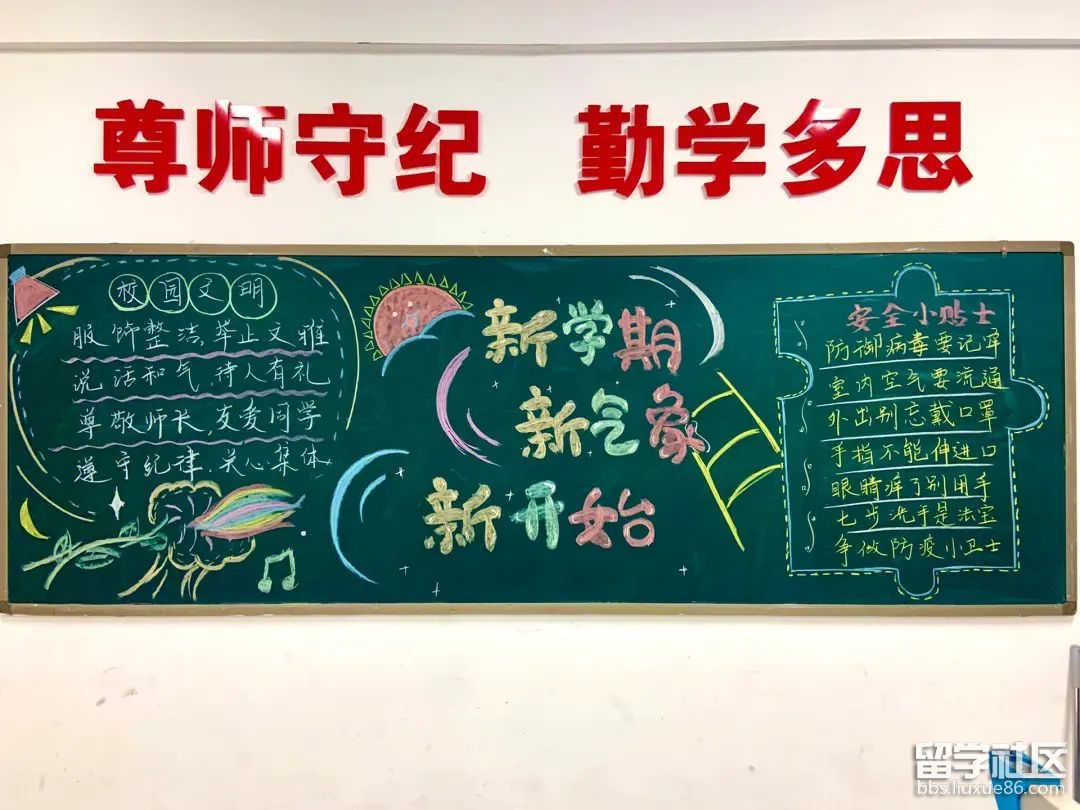 尊师守纪 勤学多思
校园文明
服饰整洁,举止文雅
说话和气,待人有礼
尊敬师长,友爱同学
遵守纪律,关心集体
新学期
新气象
新开始
安全小贴士
防御病毒要记牢
室内空气要流通
外出别忘戴口罩
手指不能伸进口
眼睛痒了别用手
七步洗手是法宝
争做防疫小卫士
留学社区
bbs.liuxue86.com